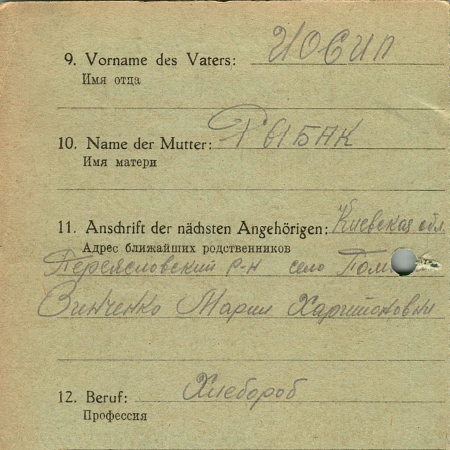 9. Vorname des Vaters: Иосип
Имя отца
10. Name der Mutter: Рыбак
Имя матери
11. Anschrift der nächsten Angehörigen: Киевская обл.
Адрес ближайших родственников
Переясловский р-н село
Зинченко Мария Харитоновн
12. Beruf: Хлебороб
Профессия